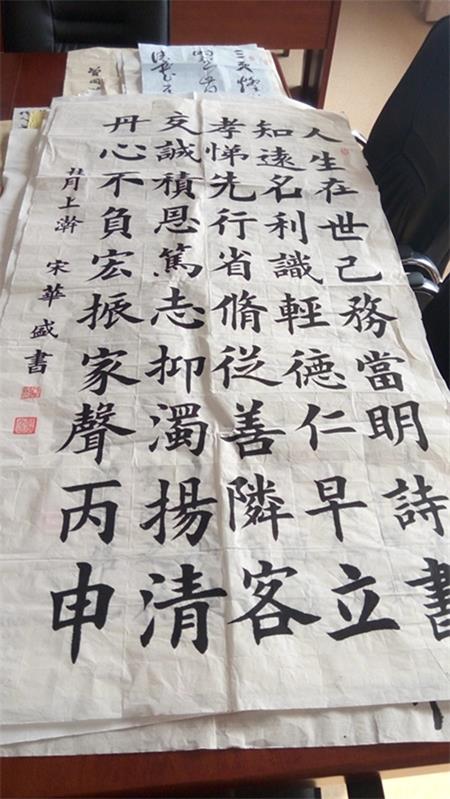 人生在世己務當明詩書
知遠名利識輕德仁早立
孝悌先行省脩從善隣客
交誠積恩篤志抑濁揚清
丹心不負宏振家聲丙申
月上澣 宋華盛書